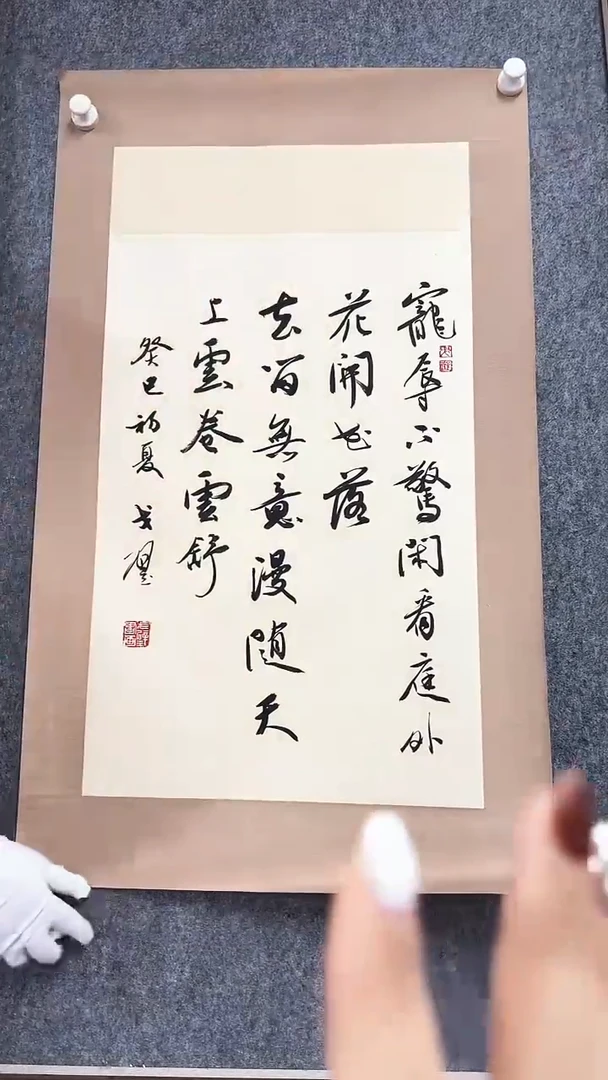 寵辱不驚閑看庭外
花開花落
去留無意漫隨天
上雲卷雲舒
癸巳初夏 戈